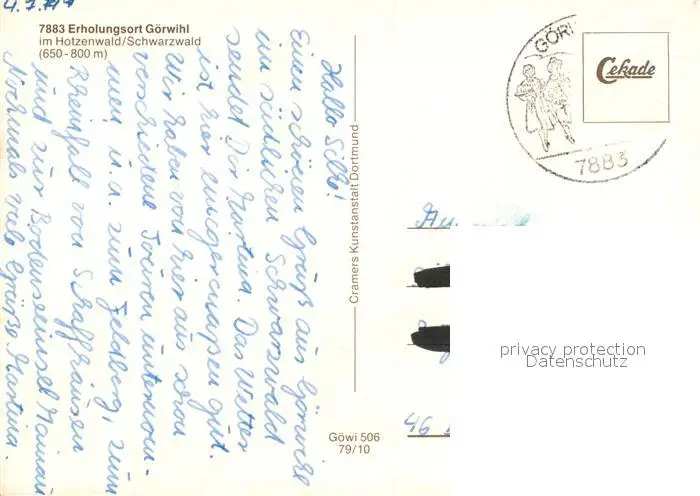 4.7.
7883 Erholungsort Görwihl
im Hotzenwald/Schwarzwald
(650-800 m)
Hallo Silke!
Einen schönen Gruß aus Görwihl
im südlichen Schwarzwald
sendet Dir Martina. Das Wetter
ist hier einigermaßen gut.
Wir haben von hier aus schon
verschiedene Touren unternom-
men u.a. zum Feldberg, zum
Rheinfall von Schaffhausen
und zur Bodenseeinsel Mainau
Nochmal viele Grüße Martina.
Cramers Kunstanstalt Dortmund
Göwi 506
79/10
GÖR
7883
Cekade
46
privacy protection
Datenschutz